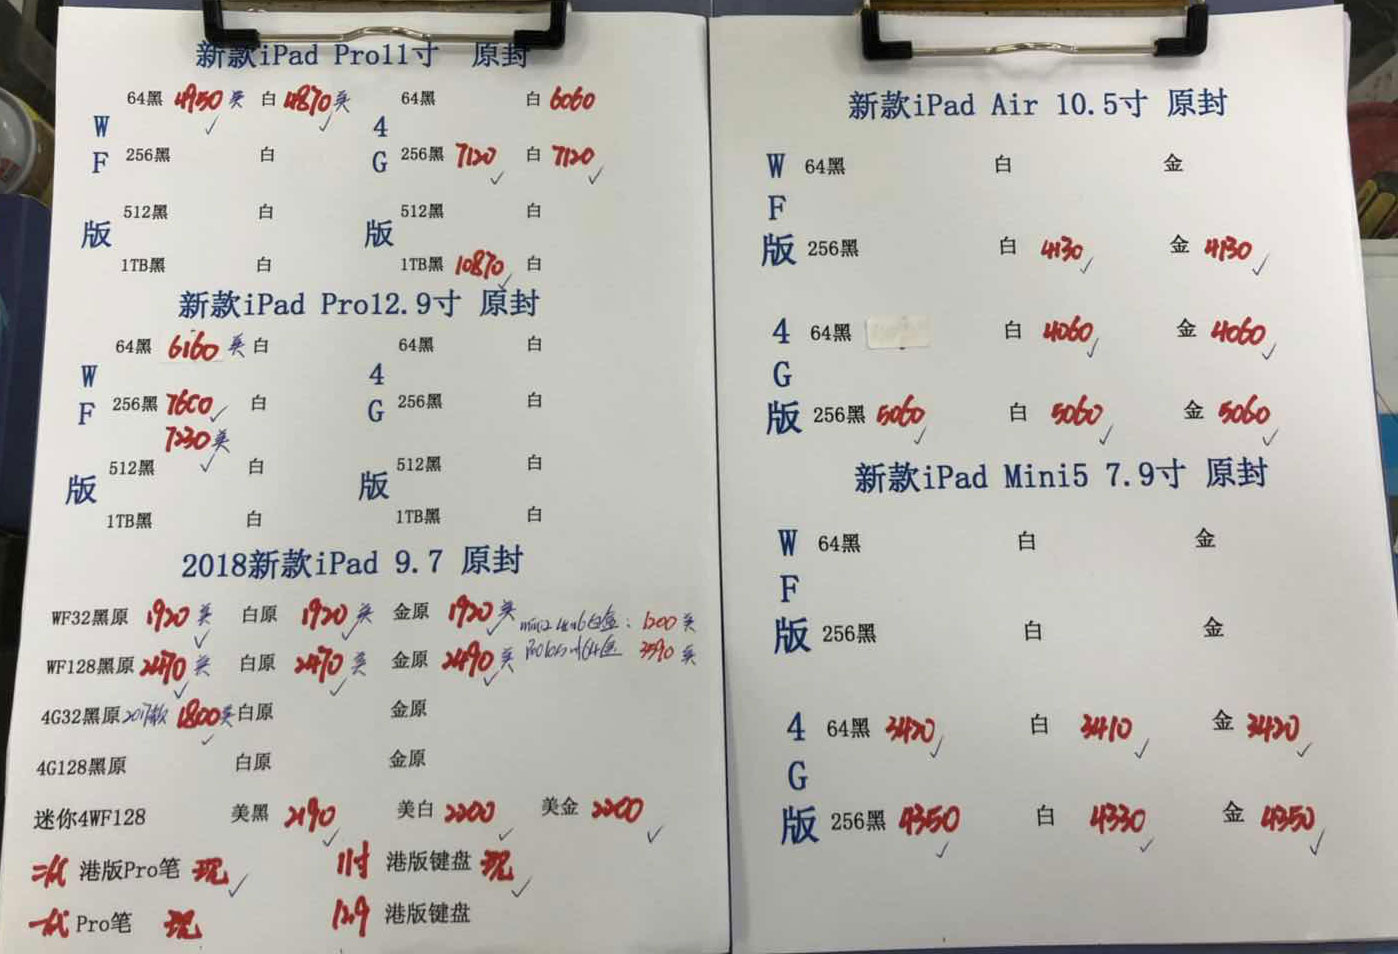 新款iPad Pro11寸 原封
64黑 4950 美 白 4870 美 64黑 白 6060
W 4
256黑 白 256黑 7120 白 7120
F G
512黑 白 512黑 白
版 版
1TB黑 白 1TB黑 10870 白
新款iPad Pro12.9寸 原封
64黑 6160 美 白 64黑 白
W 4
256黑 7600 白 256黑 白
F G
7230 美
512黑 白 512黑 白
版 版
1TB黑 白 1TB黑 白
2018新款iPad 9.7 原封
WF32黑原 1920 美 白原 1920 美 金原 1920 美
1200 美
WF128黑原 2470 美 白原 2470 美 金原 2490 美
3590 美
4G32黑原 2017款 1800 美 白原 金原
4G128黑原 白原 金原
迷你4WF128 美黑 2190 美白 2200 美金 2200
二代 港版Pro笔 现 11寸 港版键盘 现
一代 Pro笔 现 12.9 港版键盘
新款iPad Air 10.5寸 原封
W 64黑 白 金
F
版 256黑 白 4130 金 4130
4 64黑 白 4060 金 4060
G
版 256黑 5060 白 5060 金 5060
新款iPad Mini5 7.9寸 原封
W 64黑 白 金
F
版 256黑 白 金
4 64黑 3420 白 3410 金 3420
G
版 256黑 4350 白 4330 金 4350